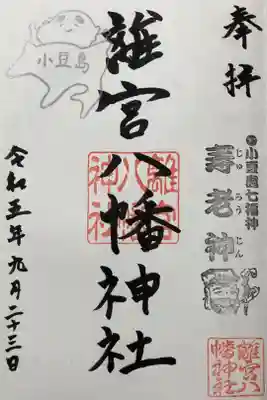 奉拝
小豆島七福神
じゅろうじん
寿老神
離宮八幡神社
離宮八幡神社
小豆島
離宮八幡神社
令和五年九月二十三日